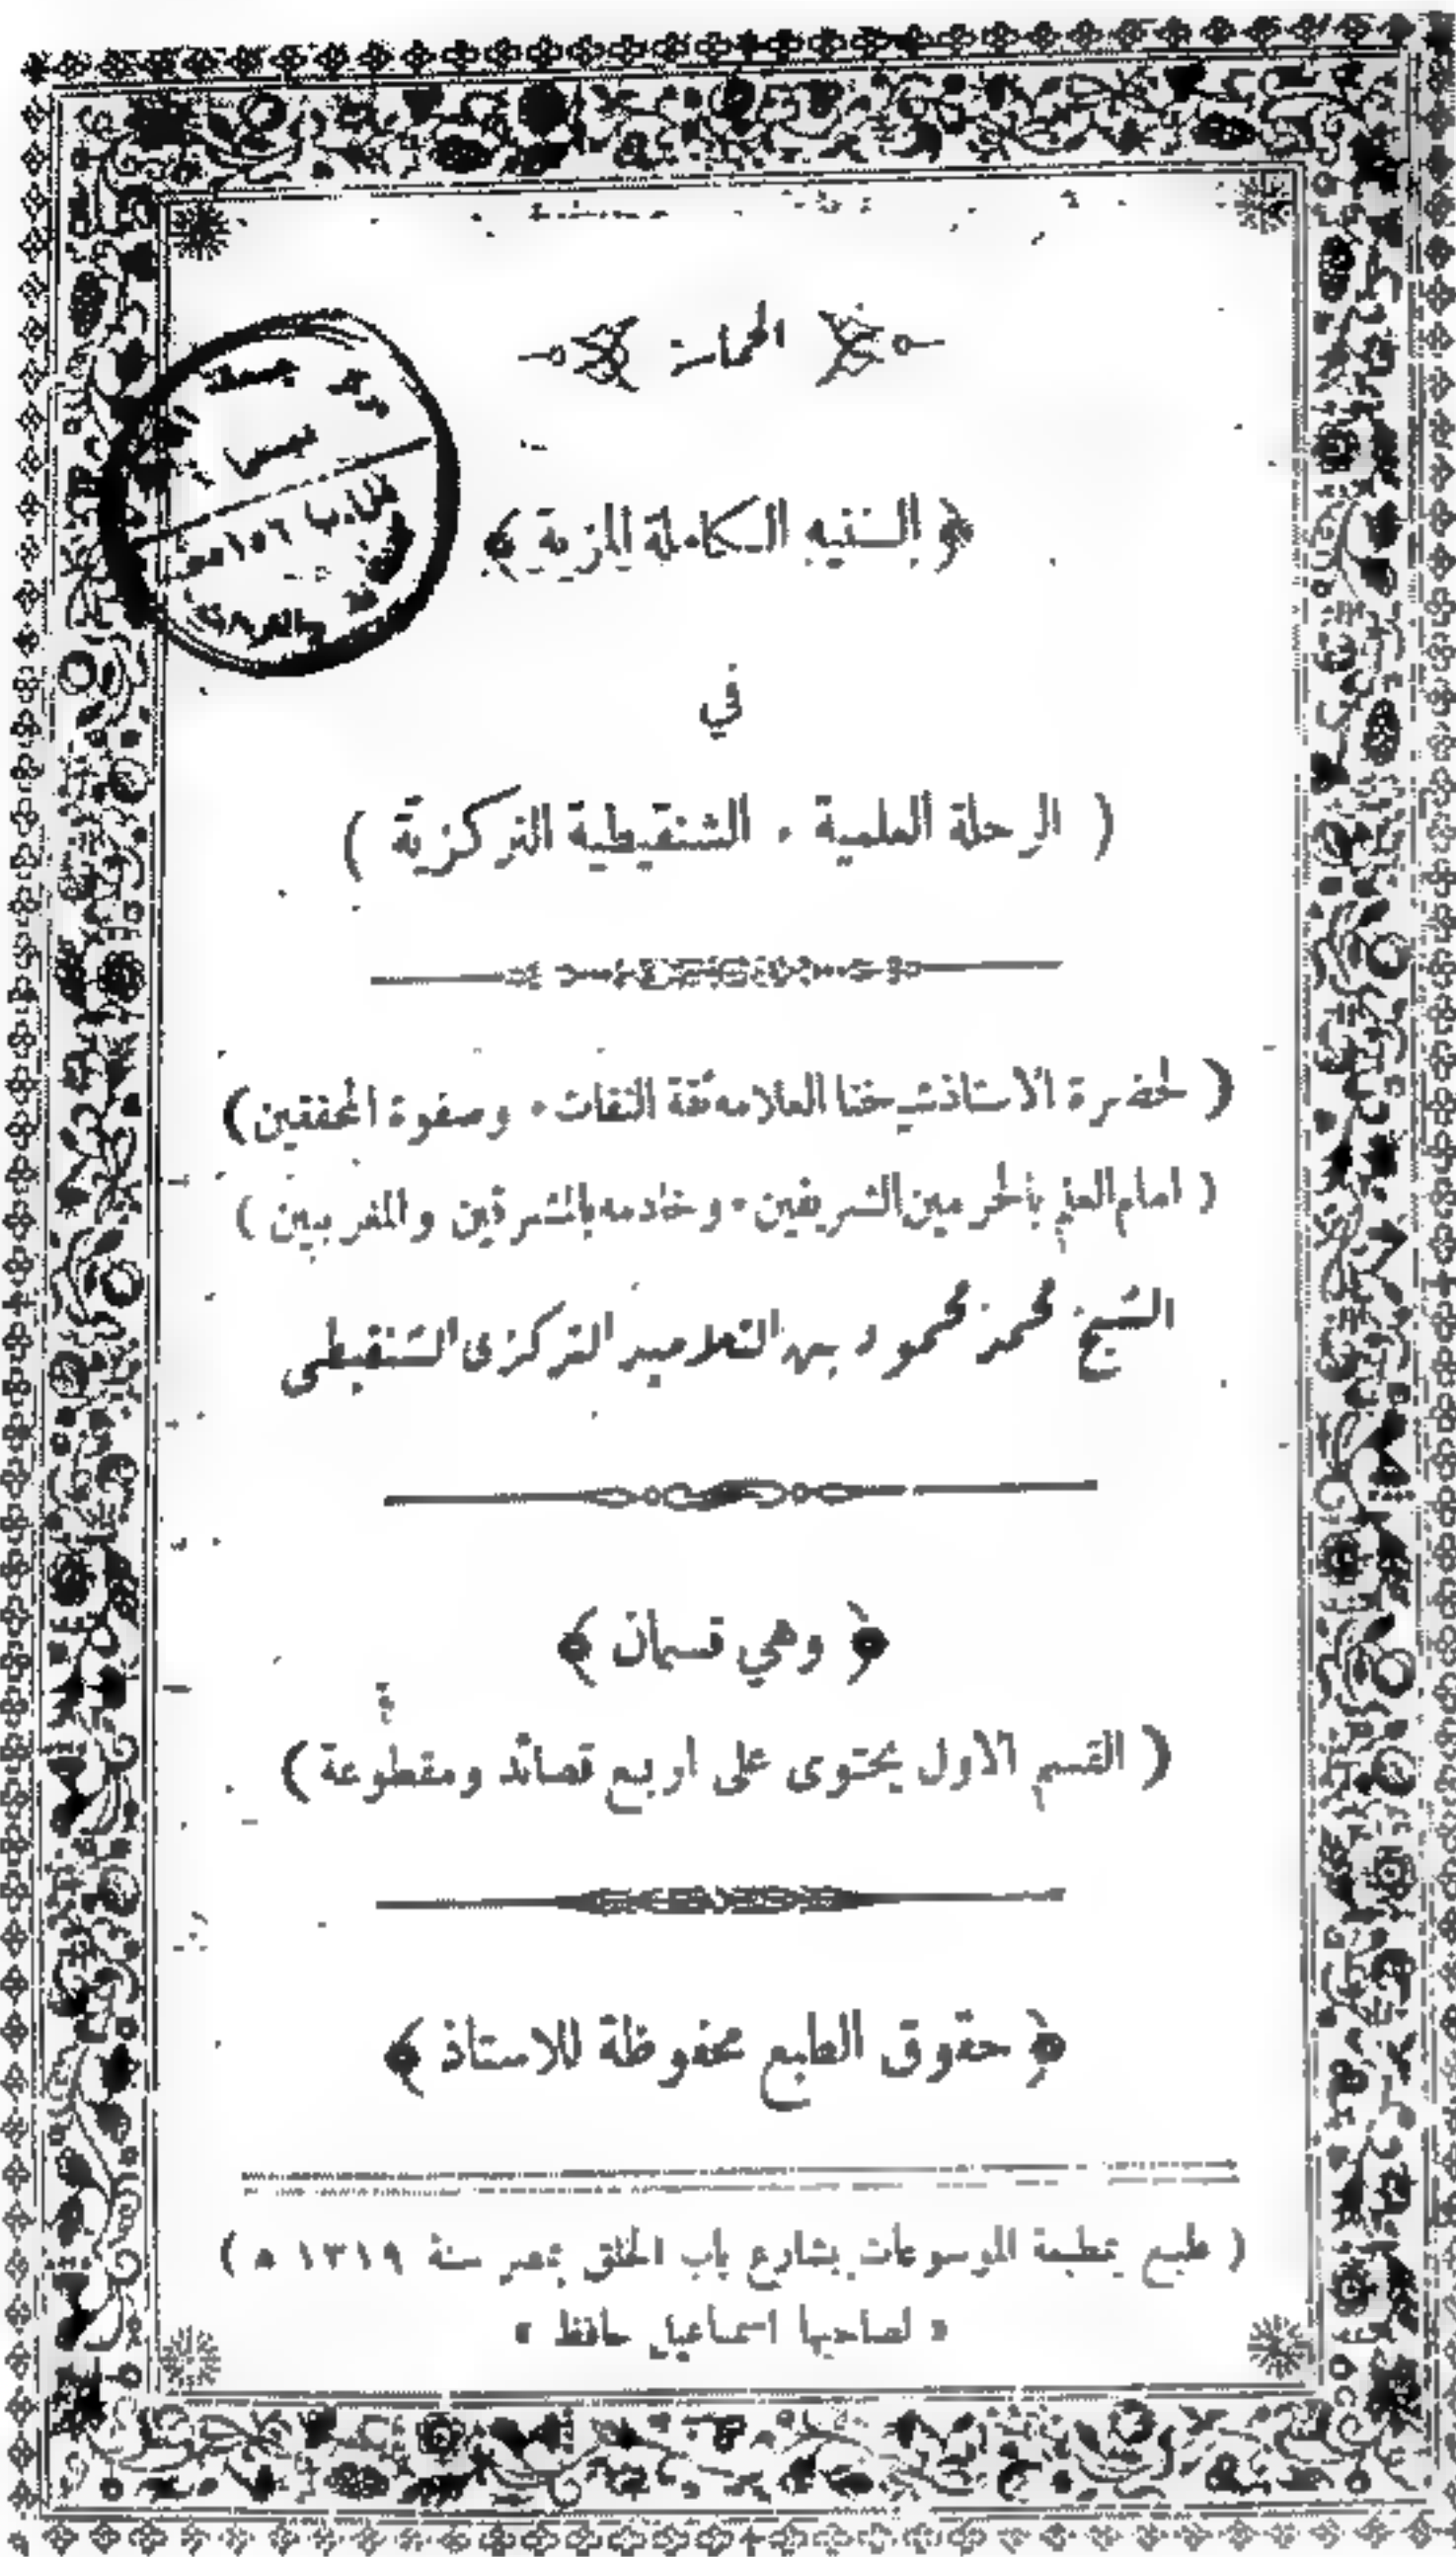 الحماسة
﴿ السنية الكاملة المزية ﴾
في
( الرحلة العلمية . الشنقيطية التركزية )
( لحضرة الاستاذ شيخنا العلامه ثقة الثقات . وصفوة المحققين )
( امام العلم بالحرمين الشريفين . وخادمه بالمشرقين والمغربين )
الشيخ محمد محمود بن التلاميد التركزى الشنقيطى
﴿ وهي قسمان ﴾
( القسم الاول يحتوى على اربع قصائد ومقطوعة )
﴿ حقوق الطبع محفوظة للاستاذ ﴾
( طبع بمطبعة الموسوعات بشارع باب الخلق بمصر سنة ١٣١٩ ه )
« لصاحبها اسماعيل حافظ »